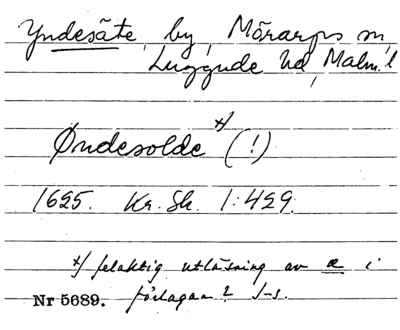 Yndesäte, by, Mörarps sn,
Luggude hd, Malm. l
Öndesolde x) (!)
1625. Kr. Sk. 1:429.
x) felaktig utläsning av æ i
Nr 5689. förlagan? J-s.